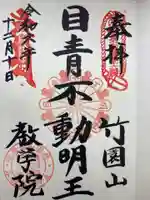 奉拝
竹園山
目青不動明王
教学院
令和六年
十二月十日